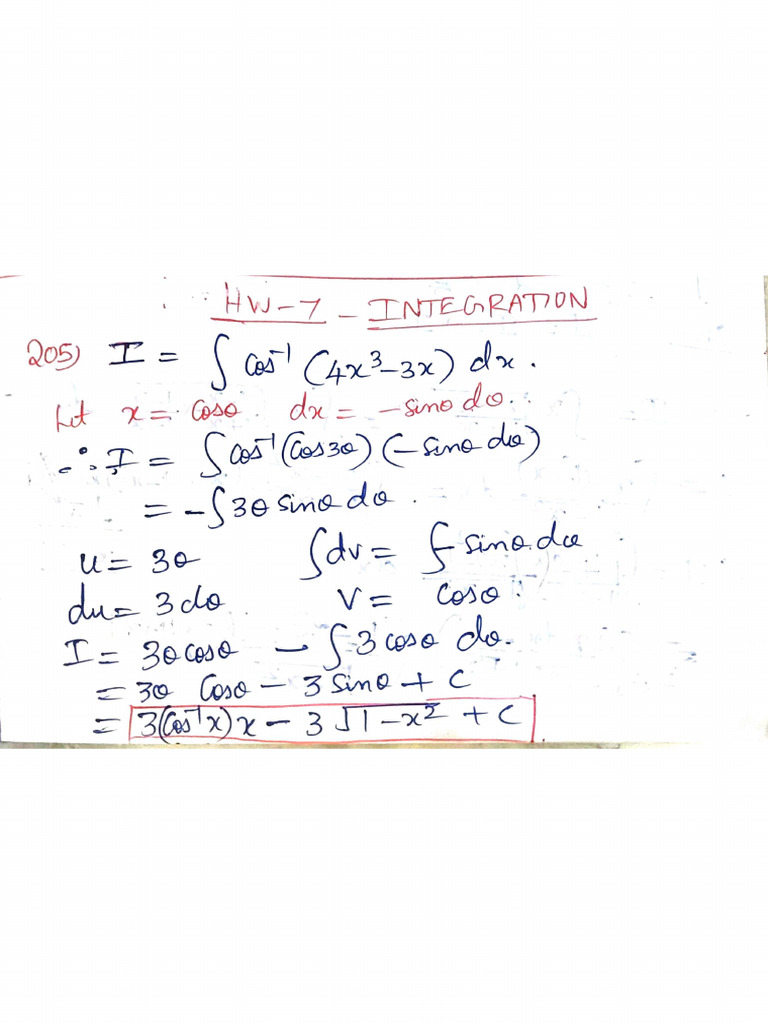 HW-7 - INTEGRATION
205) I = ∫ Cos⁻¹ (4x³-3x) dx.
Let x = cosθ. dx = -sinθ dθ.
∴ I = ∫ Cos⁻¹ (Cos3θ) (-sinθ dθ)
= -∫ 3θ sinθ dθ.
u = 3θ ∫dv = ∫-sinθ.dθ
du = 3dθ V = cosθ.
I = 3θcosθ - ∫ 3 cosθ dθ.
= 3θ Cosθ - 3 Sinθ + C
= 3(Cos⁻¹x)x - 3√1-x² + C